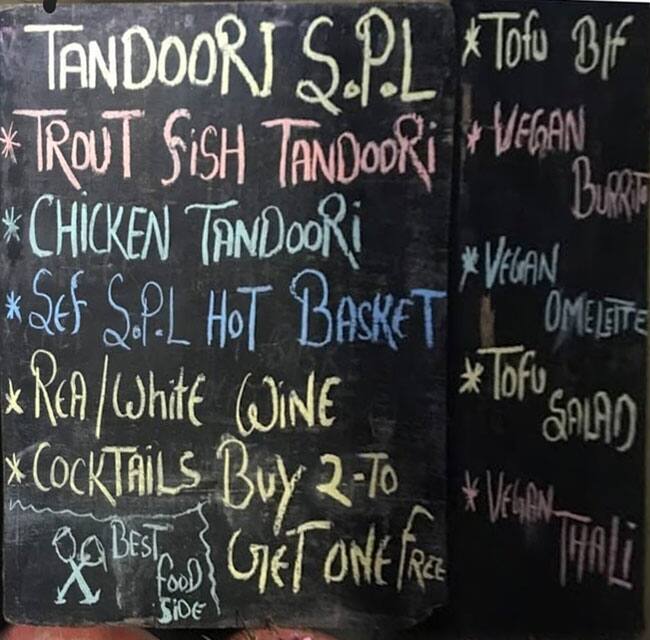 TANDOORI S.P.L
* TROUT FiSH TANDOORi
* CHICKEN TANDOORi
* SEF S.P.L HOT BASKET
* REA/WHitE WiNE
* COCKTAILS BUY 2-TO
GET ONE FREE
BEST
FOOD
SiDE
* TOFU
* VEGAN
BURRITO
* VEGAN
OMELETTE
* TOFU
SALAD
* VEGAN
THALi